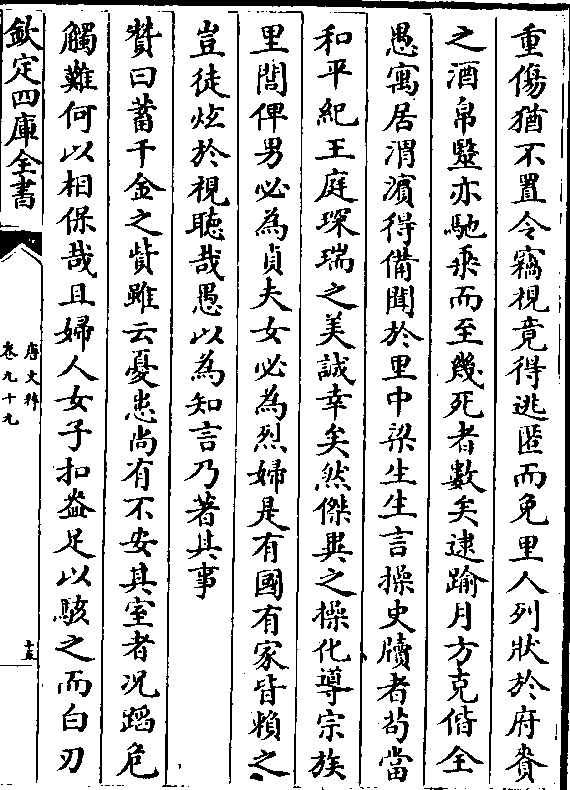 重傷猶不置令竊視竟得逃匿而免里人列狀於府賚
之酒帛毉亦馳乘而至幾死者數矣逮踰月方克偕全
愚寓居渭濱得備聞於里中梁生生言操史牘者茍當
和平紀王庭琛瑞之美誠幸矣然傑異之操化導宗族
里閭俾男必為貞夫女必為烈婦是有國有家皆賴之
豈徒炫於視聽哉愚以為知言乃著其事
賛曰蓄千金之貲雖云憂患尚有不安其室者況蹈危
觸難何以相保哉且婦人女子扣盎足以駭之而白刃
欽定四庫全書
唐文粹
卷九十九